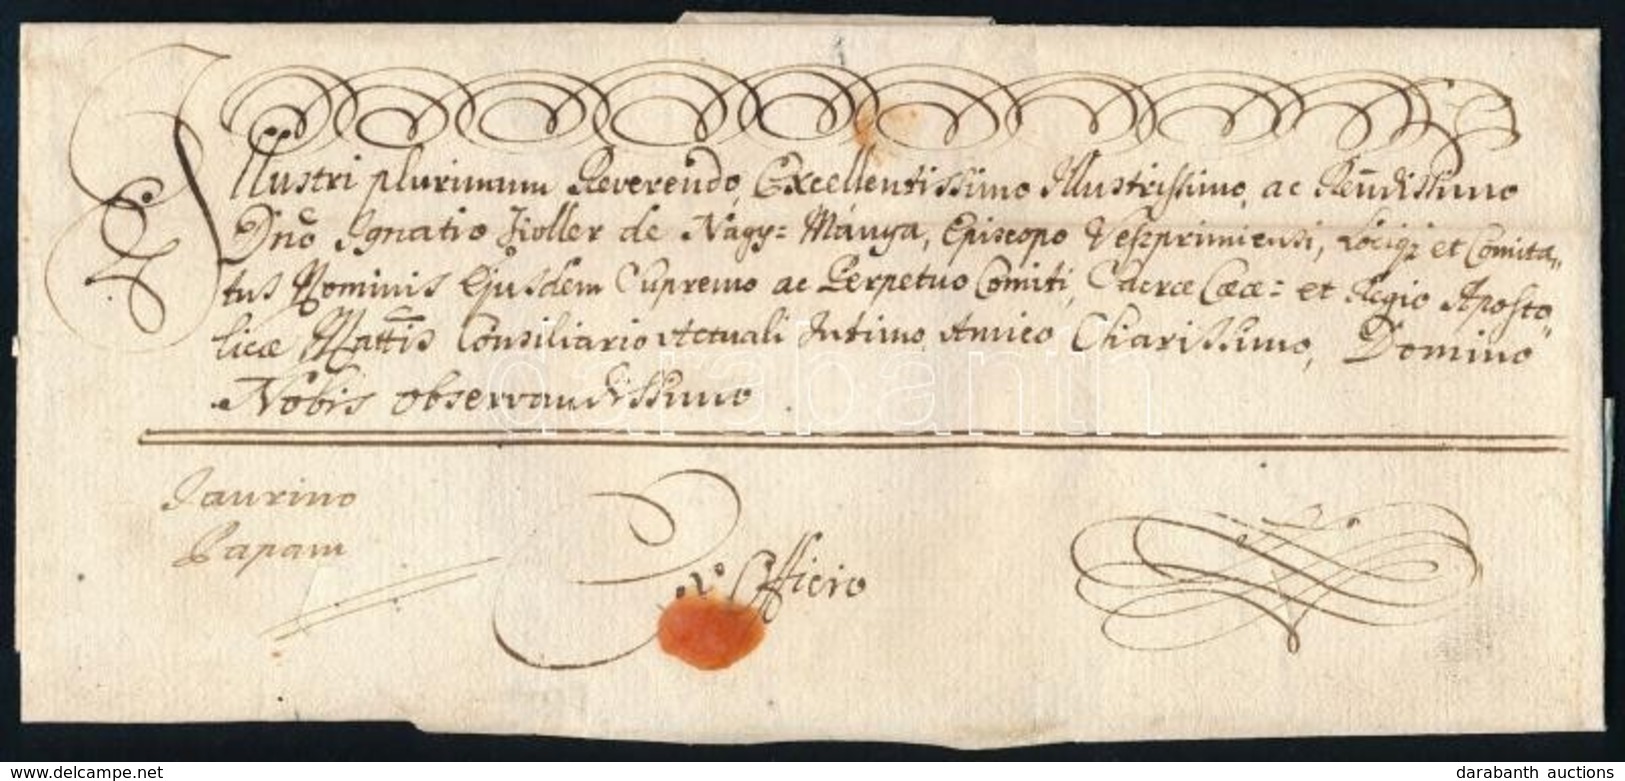 Illustri plurimum Reverendo, Excellentissimo Illustrissimo, ac Rev̄ndissimo
Dn̄o Ignatio Koller de Nagy= Mánya, Episcopo Veszprimiensi, Lociq₃ et Comita„
tus Nominis Ejusdem Supremo ac Perpetuo Comiti, Sacrae Caeae= et Regio Aposto„
licae Mattis Consiliario Actuali Intimo, Amico Charissimo, Domino
Nobis observandissimo.
Jaurino
Papam
Ex Officio
darabanth
delcampe.net
darabanth auctions